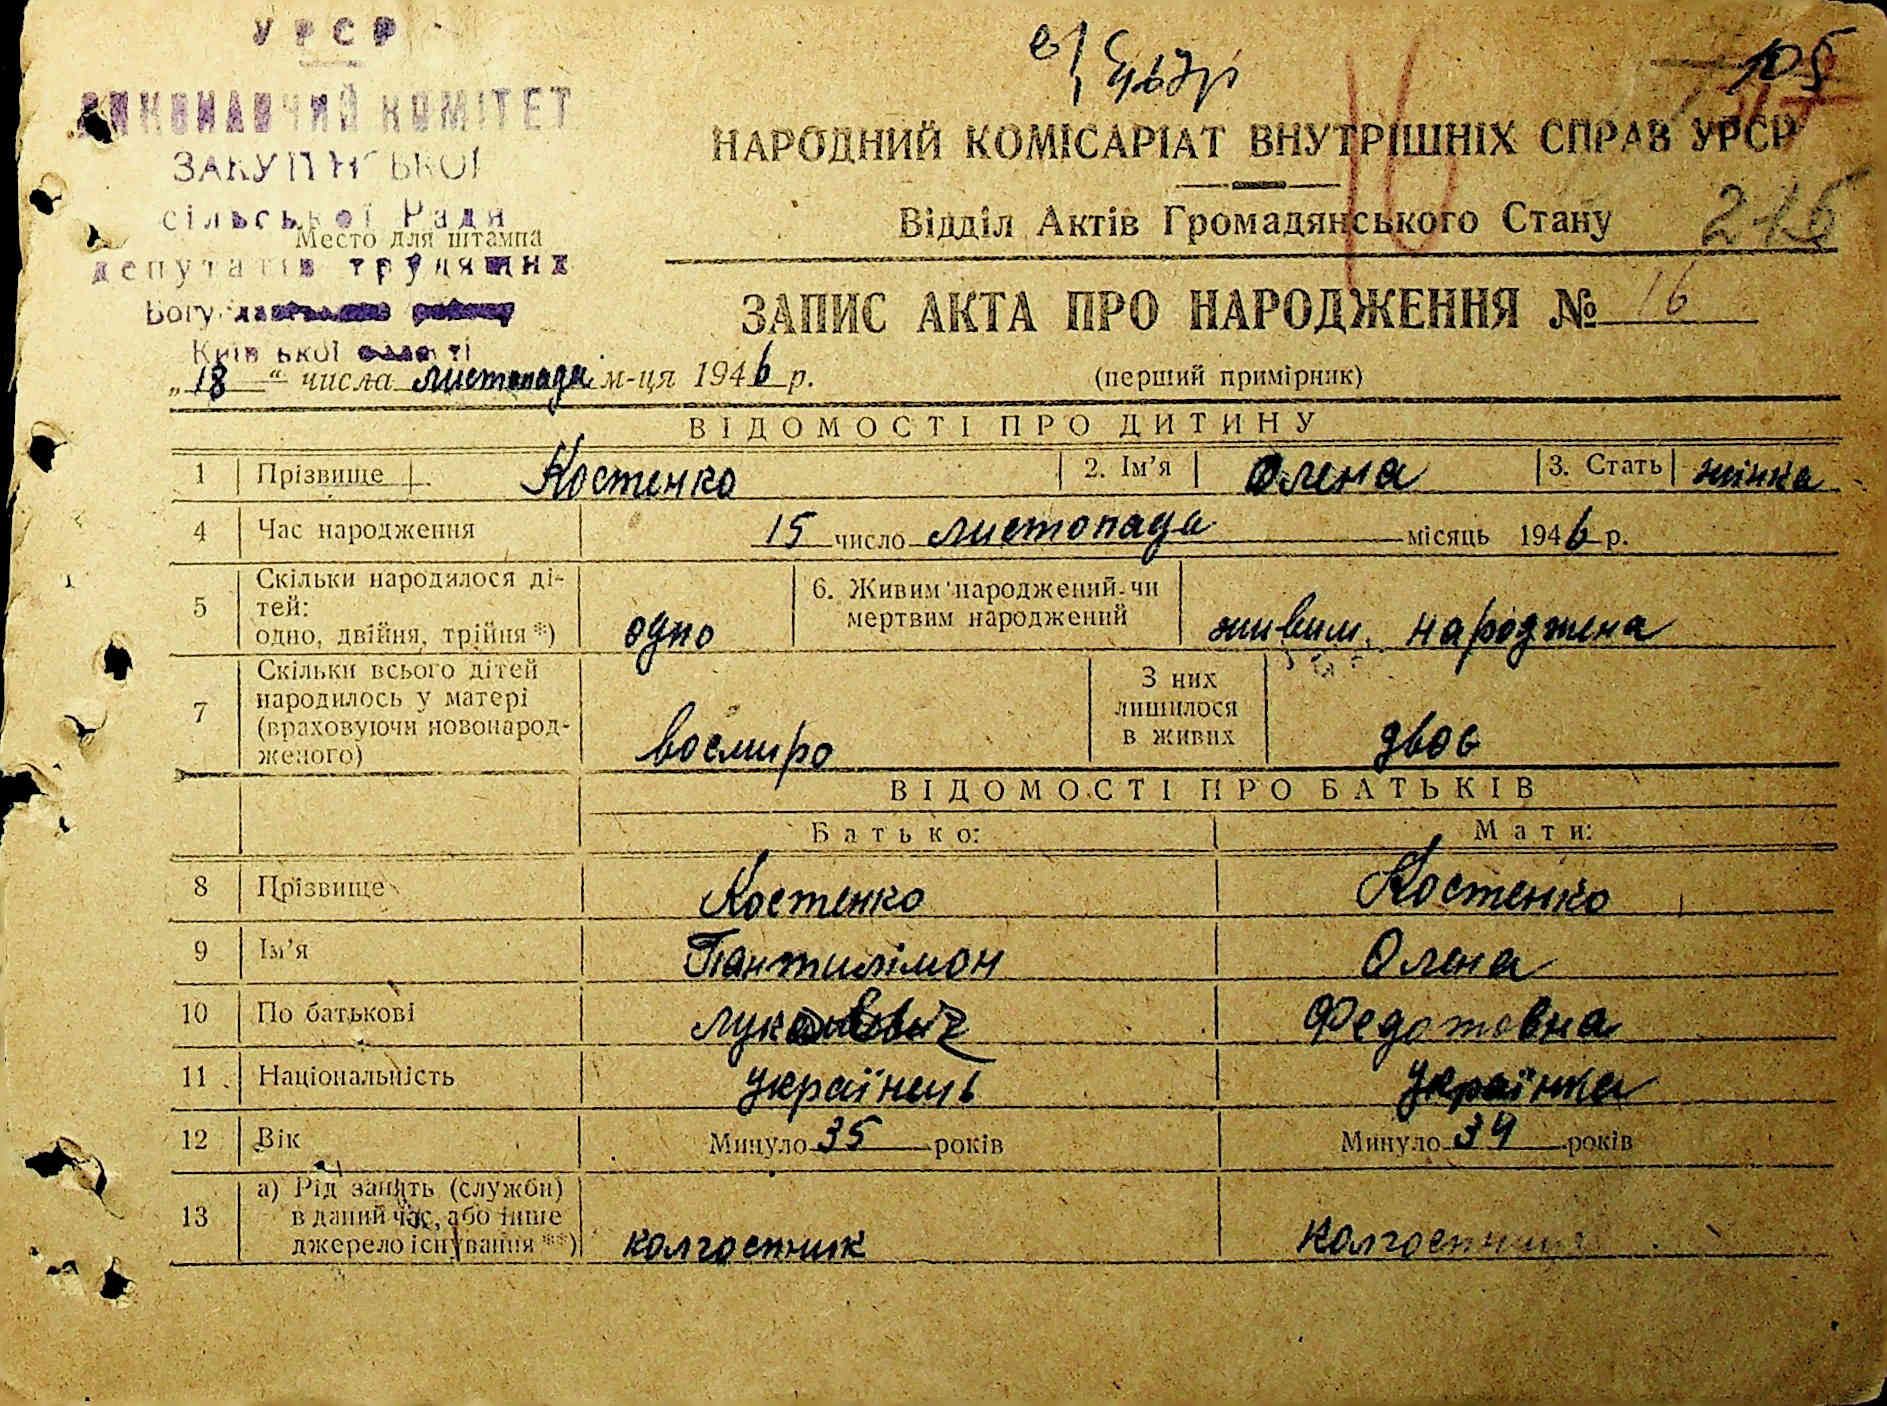 УРСР
ВИКОНАВЧИЙ КОМІТЕТ
сільської Ради
Место для штампа
депутатів трудящих
105
НАРОДНИЙ КОМІСАРІАТ ВНУТРІШНІХ СПРАВ УРСР
16
Відділ Актів Громадянського Стану
215
ЗАПИС АКТА ПРО НАРОДЖЕННЯ № 16
„18“ числа листопада м-ця 1946 р. (перший примірник)
ВІДОМОСТІ ПРО ДИТИНУ
1 Прізвище Костенко 2. Ім’я Олена 3. Стать жінка
4 Час народження 15 число листопада місяць 1946 р.
5 Скільки народилося ді-
тей:
одно, двійня, трійня*) одно
6. Живим народжений чи
мертвим народжений живим народжена
7 Скільки всього дітей
народилось у матері
(враховуючи новонарод-
женого) восмиро
З них
лишилося
в живих двоє
ВІДОМОСТІ ПРО БАТЬКІВ
Батько: Мати:
8 Прізвище Костенко Костенко
9 Ім’я Пантилімон Олена
10 По батькові Федотовна
11 Національність українець українка
12 Вік Минуло 35 років Минуло 34 років
13 а) Рід занять (служби)
в даний час, або інше
джерело існування **) колгоспник колгоспниця